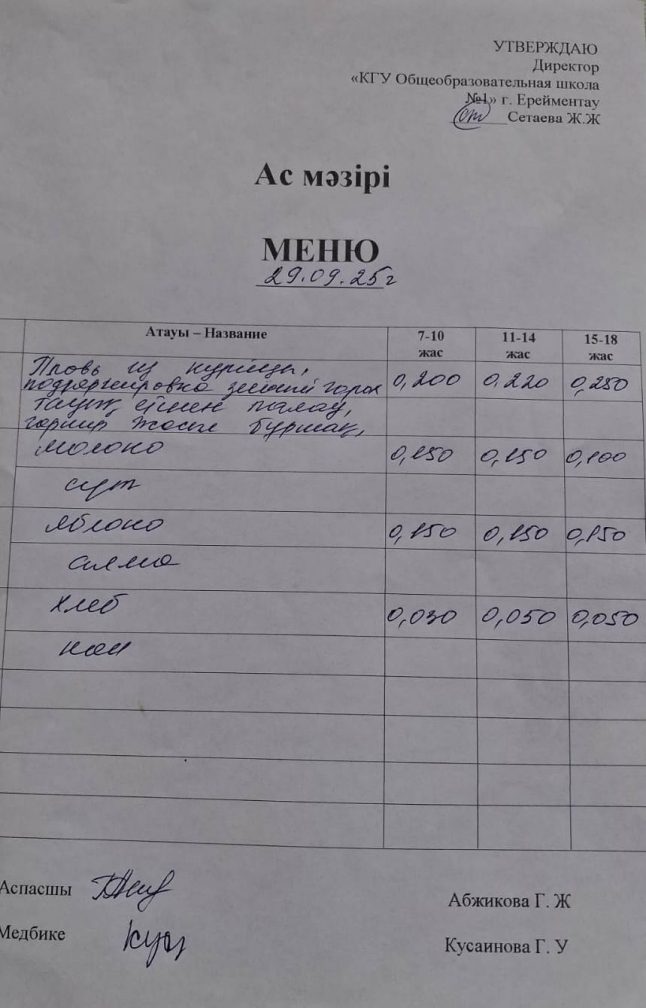 УТВЕРЖДАЮ
Директор
«КГУ Общеобразовательная школа
№1» г. Ерейментау
Сетаева Ж.Ж
Ас мәзірі
МЕНЮ
29.09.25г
Атауы – Название 7-10 жас 11-14 жас 15-18 жас
из курицы, 0,200 0.220 0,250
зеленый горох
етімен палау,
гарнир жасыл бұршақ,
молоко 0,150 0,150 0,100
сүт
яблоко 0,150 0,150 0,150
алма
хлеб 0,030 0,050 0,050
нан
Аспасшы Абжикова Г. Ж
Медбике Кусаинова Г. У